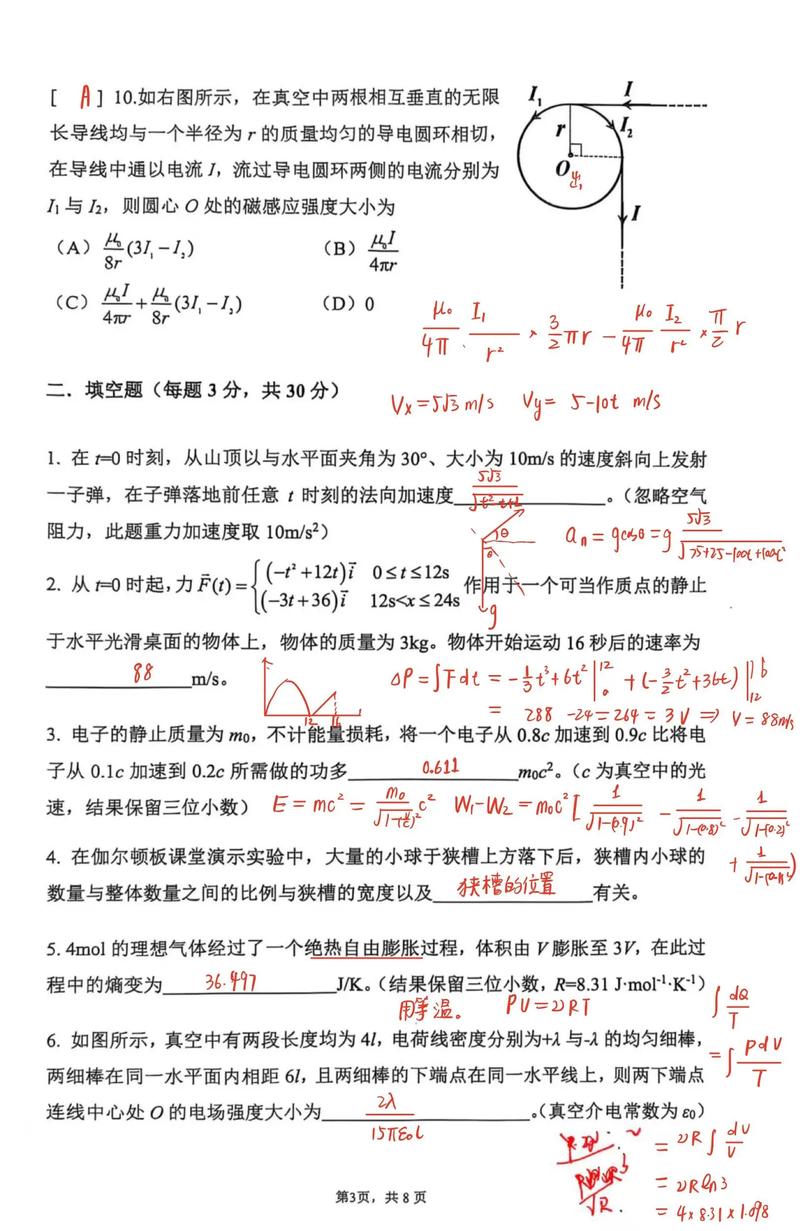 [ A ] 10.如右图所示，在真空中两根相互垂直的无限
长导线均与一个半径为 r 的质量均匀的导电圆环相切，
在导线中通以电流 I，流过导电圆环两侧的电流分别为
I₁ 与 I₂，则圆心 O 处的磁感应强度大小为
I₁ I
r I₂
O
I
（A）μ₀/8r (3I₁−I₂) （B）μ₀I/4πr
（C）μ₀I/4πr + μ₀/8r (3I₁−I₂) （D）0
μ₀/4π · I₁/r² × 3/2 πr − μ₀/4π I₂/r² × π/2 r
二．填空题（每题 3 分，共 30 分）
Vx=5√3 m/s Vy= 5-10t m/s
1. 在 t=0 时刻，从山顶以与水平面夹角为 30°、大小为 10m/s 的速度斜向上发射
一子弹，在子弹落地前任意 t 时刻的法向加速度 5√3/√(t²-t+1) 。（忽略空气
阻力，此题重力加速度取 10m/s²）
θ
θ
g
aₙ = gcosθ = g 5√3/√(75+25-100t+100t²)
2. 从 t=0 时起,力 F⃗(t)= { (−t²+12t)i⃗ 0≤t≤12s
(−3t+36)i⃗ 12s<x≤24s 作用于一个可当作质点的静止
于水平光滑桌面的物体上，物体的质量为 3kg。物体开始运动 16 秒后的速率为
88 m/s。
12 16
ΔP = ∫Fdt = -1/3 t³+6t² |₀¹² + (-3/2 t²+36t) |₁₂¹⁶
= 288 -24 = 264 = 3V ⇒ V = 88m/s
3. 电子的静止质量为 m₀，不计能量损耗，将一个电子从 0.8c 加速到 0.9c 比将电
子从 0.1c 加速到 0.2c 所需做的功多 0.611 m₀c²。（c 为真空中的光
速，结果保留三位小数） E = mc² = m₀/√(1-(v/c)²) c² W₁-W₂ = m₀c² [ 1/√(1-(0.9)²) - 1/√(1-(0.8)²) - 1/√(1-(0.2)²)
+ 1/√(1-(0.1)²) )
4. 在伽尔顿板课堂演示实验中，大量的小球于狭槽上方落下后，狭槽内小球的
数量与整体数量之间的比例与狭槽的宽度以及 狭槽的位置 有关。
5. 4mol 的理想气体经过了一个绝热自由膨胀过程，体积由 V 膨胀至 3V，在此过
程中的熵变为 36.497 J/K。（结果保留三位小数，R=8.31 J·mol⁻¹·K⁻¹）
用等温。 PV=νRT ∫ dQ/T
6. 如图所示，真空中有两段长度均为 4l，电荷线密度分别为+λ 与-λ 的均匀细棒，
= ∫ PdV/T
两细棒在同一水平面内相距 6l，且两细棒的下端点在同一水平线上，则两下端点
连线中心处 O 的电场强度大小为 2λ/15πε₀l 。（真空介电常数为 ε₀）
= νR ∫ dV/V
= νRln3
= 4×8.31×1.098
第3页，共 8 页